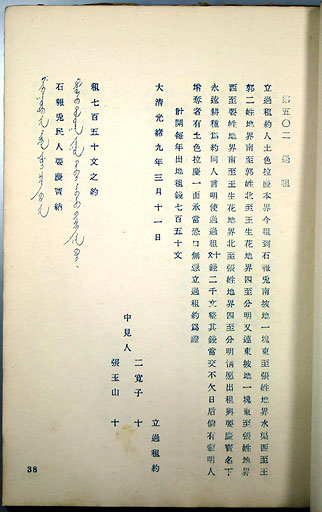 第五〇二 過租
立過租約人土色拉慶本界今租到石報兎南坡地一塊東至張姓地界水渠西至王
郭二姓地界南至郭姓北至王生花地界四至分明又連東坡地一塊東至張姓地界
西至要姓地界南至王生花地界北至張姓地界四至分明情愿出租與要慶寶名下
永遠耕種為約同人言明使過過租錢二千文整其錢當交不欠日后倘有蒙明人
增奪者有土色拉慶一面承當恐口無憑立過租約為證
計開每年出地租錢七百五十文
大清光緒九年三月十一日 立過租約
中見人 二寬子 十
張玉山 十
租七百五十文之約
石報兎民人要慶寶納
38